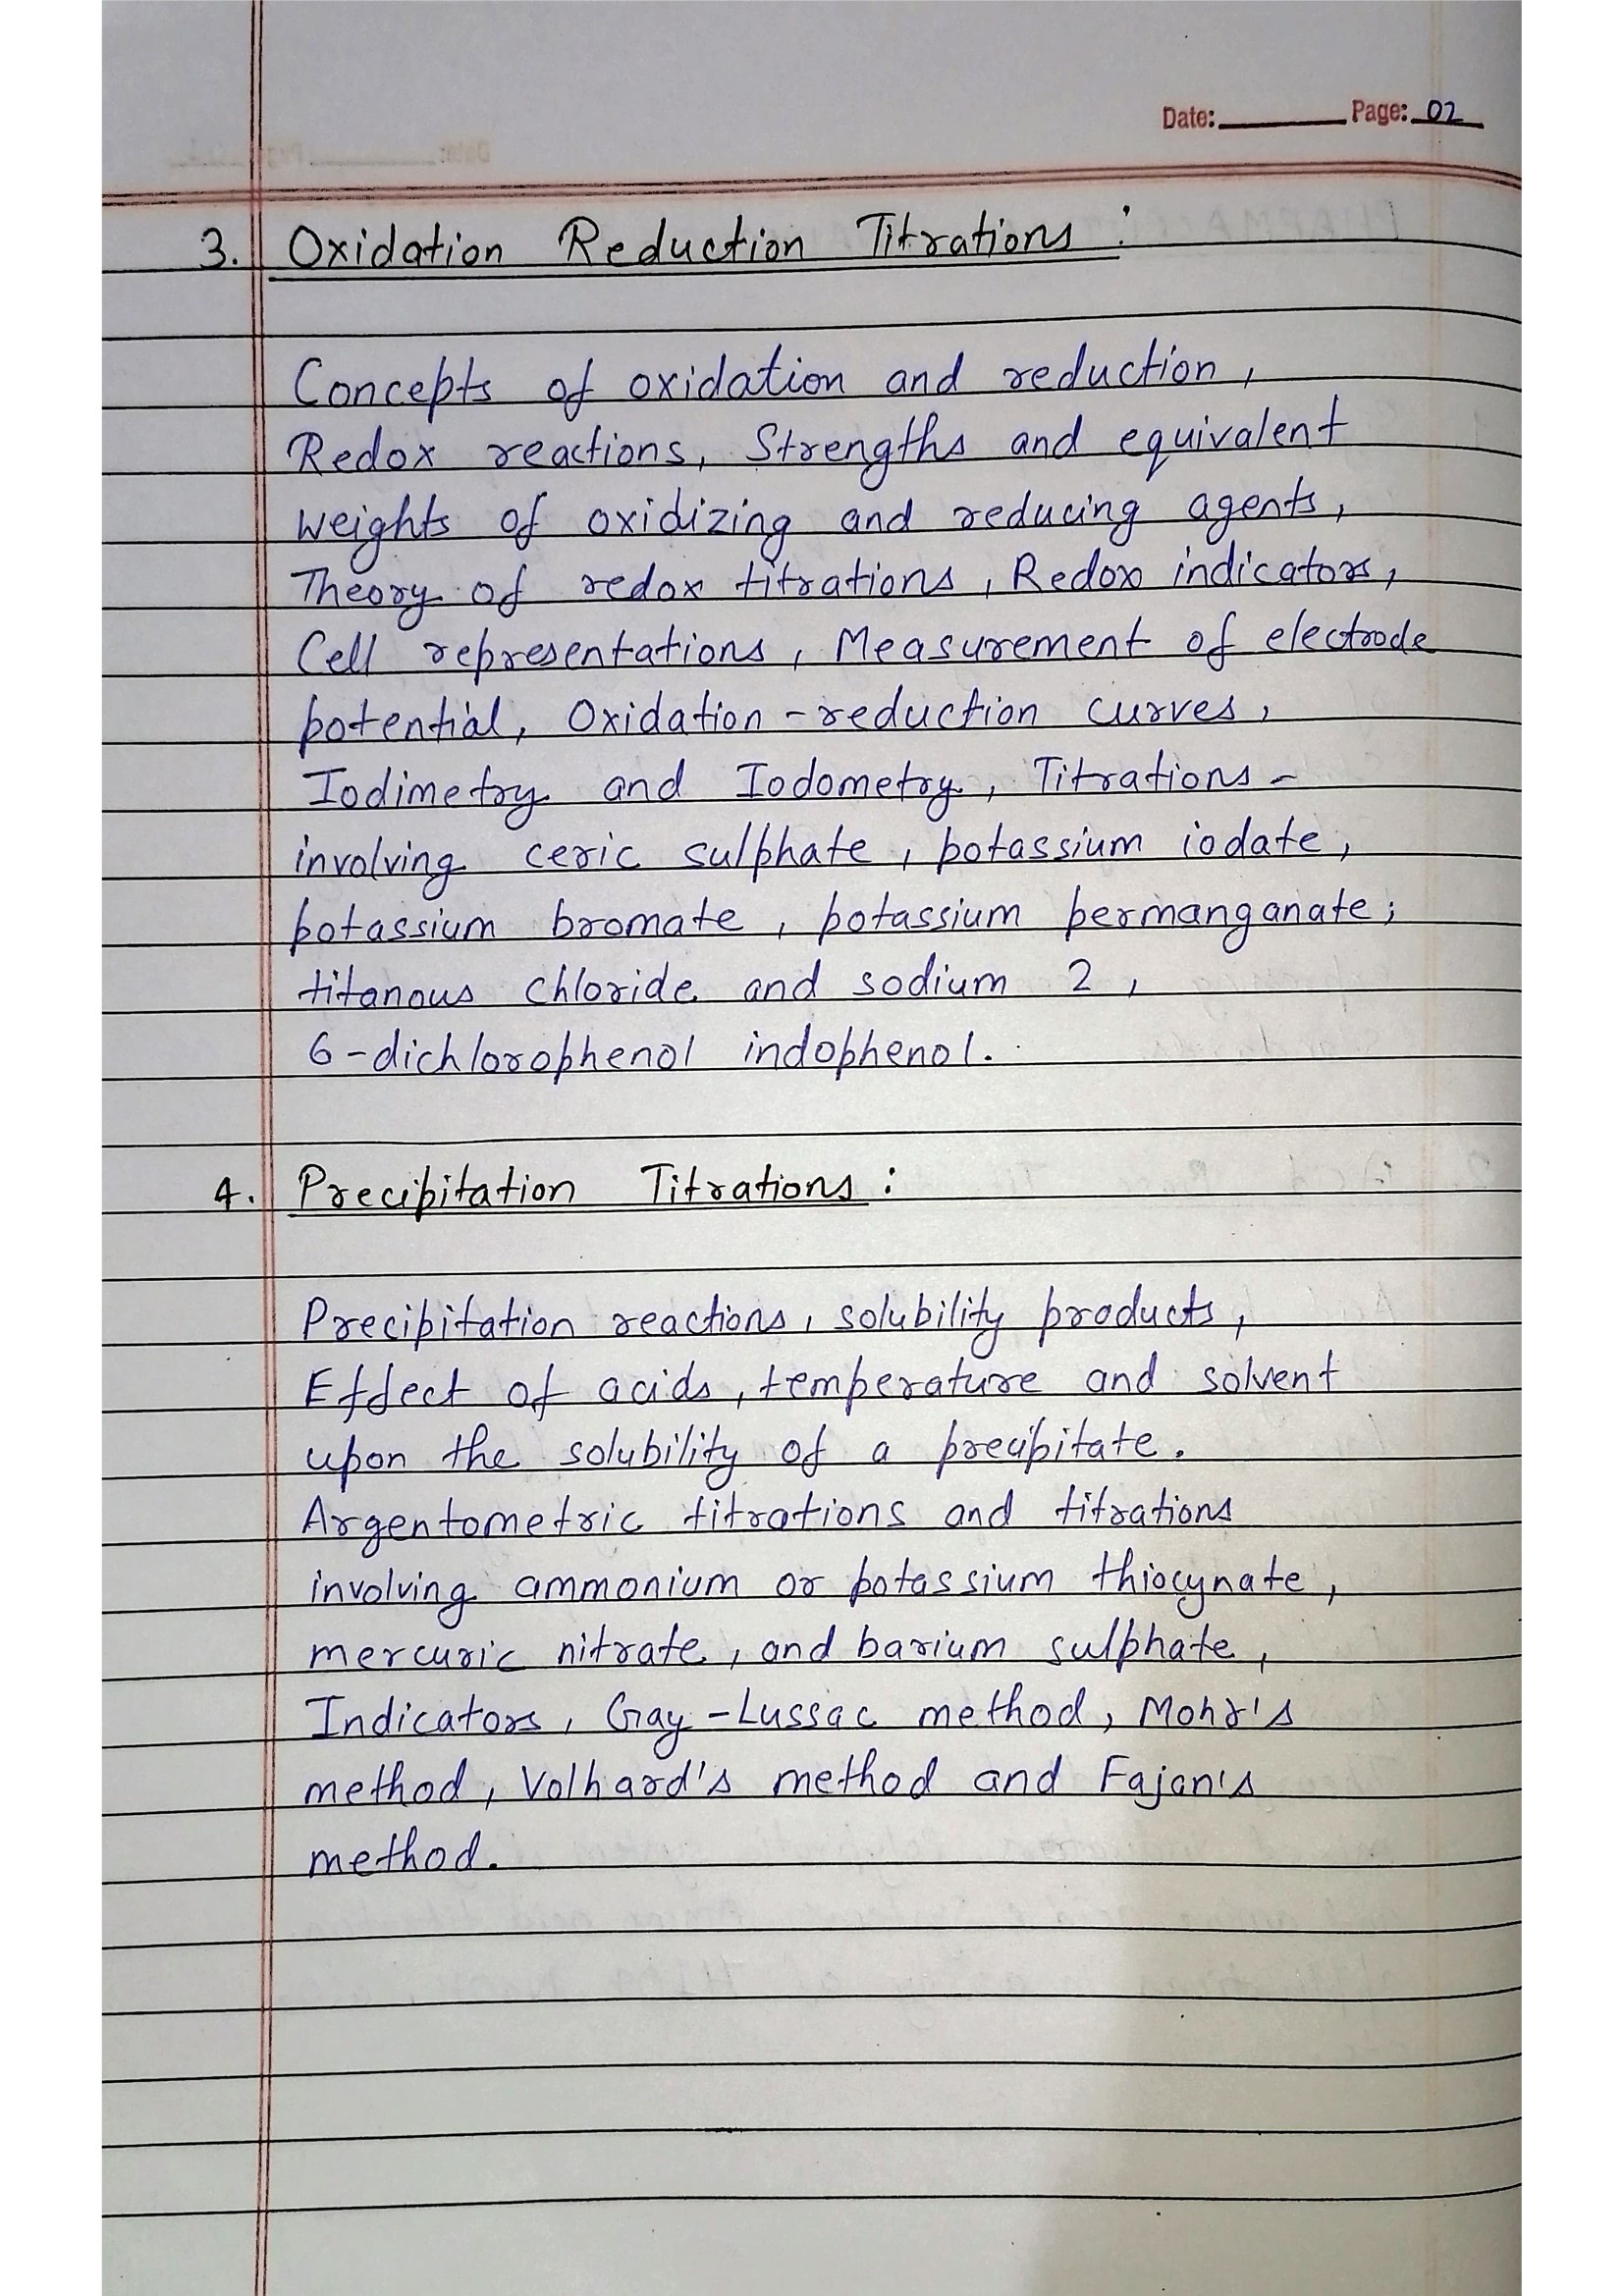 Date: Page: 02
3. Oxidation Reduction Titrations :
Concepts of oxidation and reduction,
Redox reactions, Strengths and equivalent
weights of oxidizing and reducing agents,
Theory of redox titrations, Redox indicators,
Cell representations, Measurement of electrode
potential, Oxidation-reduction curves,
Iodimetry and Iodometry, Titrations -
involving ceric sulphate, potassium iodate,
potassium bromate, potassium permanganate;
titanous chloride and sodium 2,
6-dichlorophenol indophenol.
4. Precipitation Titrations :
Precipitation reactions, solubility products,
Effect of acids, temperature and solvent
upon the solubility of a precipitate.
Argentometric titrations and titrations
involving ammonium or potassium thiocynate,
mercuric nitrate, and barium sulphate,
Indicators, Gay-Lussac method, Mohr's
method, Volhard's method and Fajan's
method.